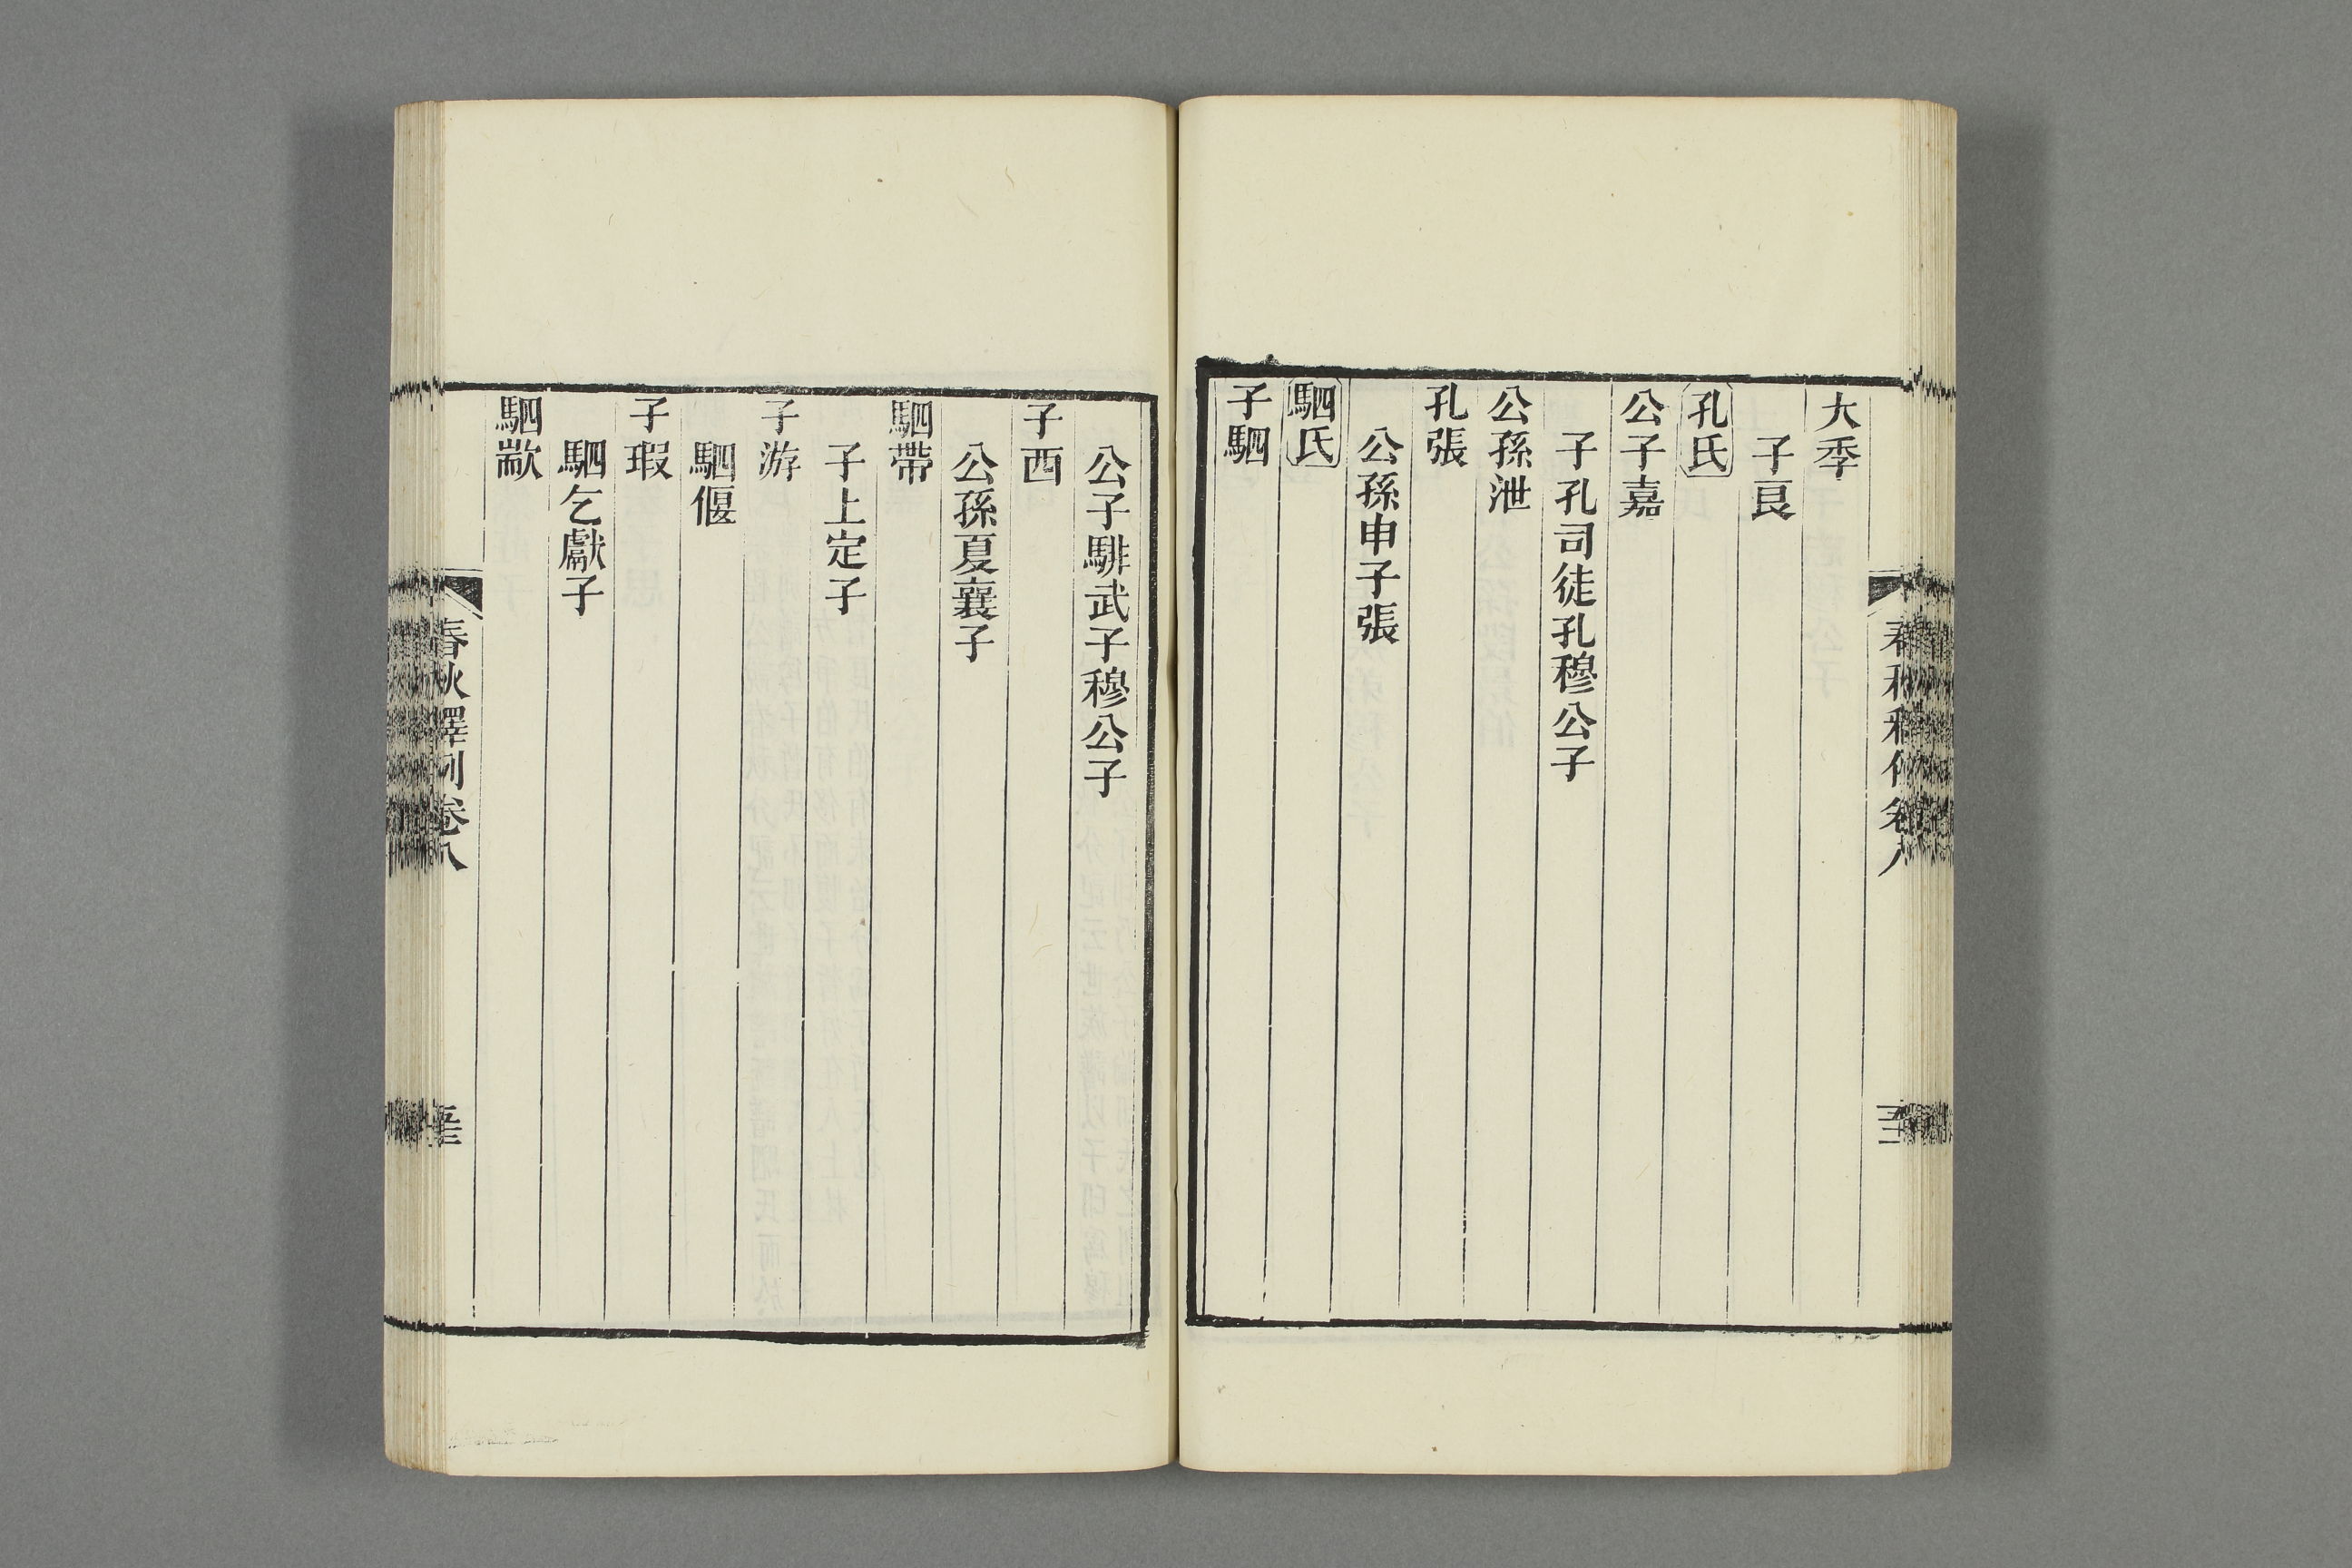 大季
子良
孔氏
公子嘉
子孔司徒孔穆公子
公孫泄
孔張
公孫申子張
駟氏
子駟
公子騑武子穆公子
子西
公孫夏襄子
駟帶
子上定子
子游
駟偃
子瑕
駟乞獻子
駟歂
春秋釋例卷八